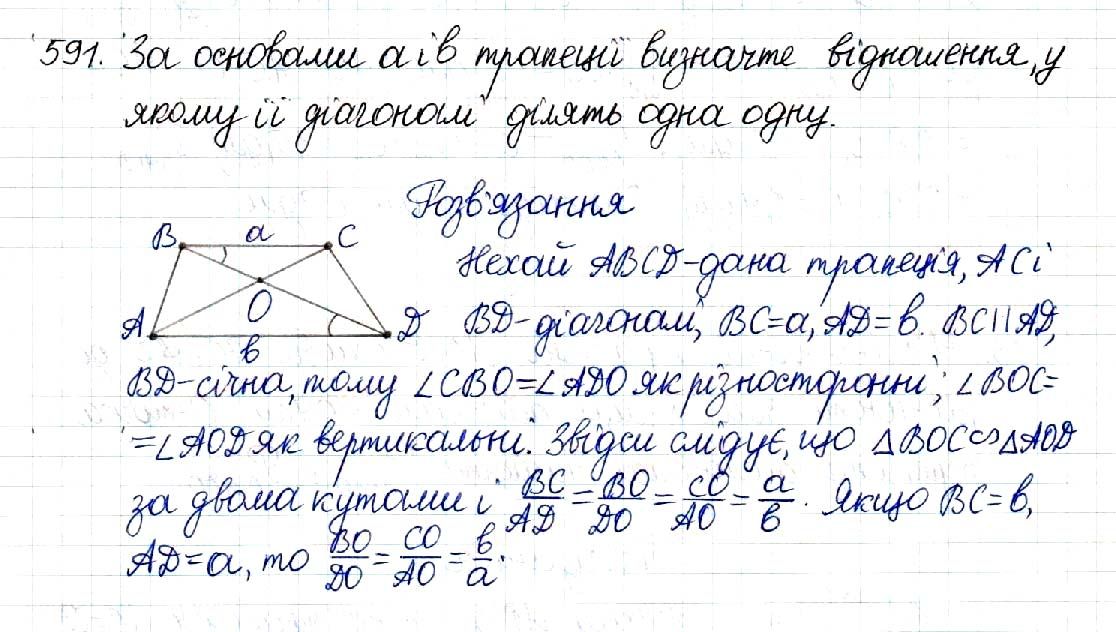 591. За основами a і b трапеції визначте відношення, у
якому її діагоналі ділять одна одну.
Розв'язання
B a C
O
A D
b
Нехай ABCD-дана трапеція, AC і
BD-діагоналі, BC=a, AD=b. BC||AD,
BD-січна, тому ∠CBO=∠ADO як різносторонні; ∠BOC=
=∠AOD як вертикальні. Звідси слідує, що △BOC∽△AOD
за двома кутами і BC/AD=BO/DO=CO/AO=a/b. Якщо BC=b,
AD=a, то BO/DO=CO/AO=b/a.